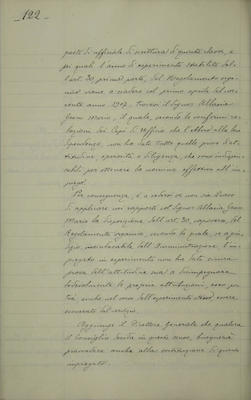 122
posti di ufficiale di scrittura di questa classe, e
pei quali l'anno di esperimento stabilito dal-
l'art. 30, prima parte, del Regolamento orga-
nico viene a scadere col primo aprile del cor-
rente anno 1907, trovasi il Signor
Gian Mario, il quale, secondo le conformi re-
lazioni dei Capi di Ufficio che l'ebbero alla loro
dipendenza, non ha dato tutte quelle prove d'at-
titudine operosità e diligenza, che sono indispen-
sabili per ottenere la nomina effettiva all'im-
piego.
Per conseguenza, è a vedersi se non sia il caso
di applicare nei rapporti col Signor
Mario la disposizione dell'art. 30, capoverso, del
Regolamento organico, secondo la quale, a giu-
dizio insindacabile dell'Amministrazione, l'im-
piegato in esperimento non ha dato sicura
prova dell'attitudine sua a disimpegnare
lodevolmente le proprie attribuzioni, esso po-
trà, anche nel corso dell'esperimento stesso, essere
esonerato dal servizio.
Aggiunge il Direttore Generale che qualora
il Consiglio decida in questi sensi, bisognerà
provvedere anche alla sostituzione di questo
impiegato.